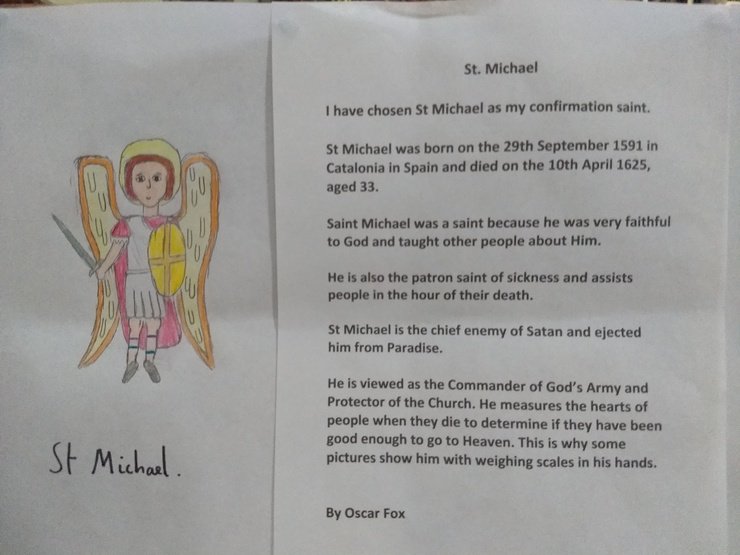 St Michael.
St. Michael
I have chosen St Michael as my confirmation saint.
St Michael was born on the 29th September 1591 in
Catalonia in Spain and died on the 10th April 1625,
aged 33.
Saint Michael was a saint because he was very faithful
to God and taught other people about Him.
He is also the patron saint of sickness and assists
people in the hour of their death.
St Michael is the chief enemy of Satan and ejected
him from Paradise.
He is viewed as the Commander of God's Army and
Protector of the Church. He measures the hearts of
people when they die to determine if they have been
good enough to go to Heaven. This is why some
pictures show him with weighing scales in his hands.
By Oscar Fox